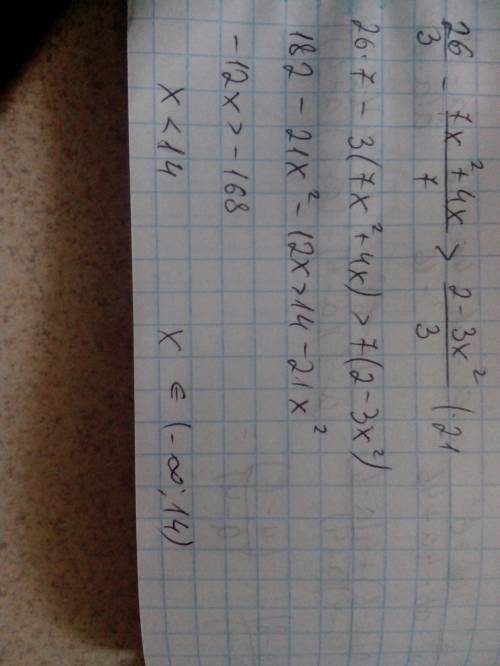 26/3 - (7x² + 4x)/7 > (2 - 3x²)/3 | · 21
26·7 - 3(7x² + 4x) > 7(2 - 3x²)
182 - 21x² - 12x > 14 - 21x²
-12x > -168
x < 14 x ∈ (-∞; 14)